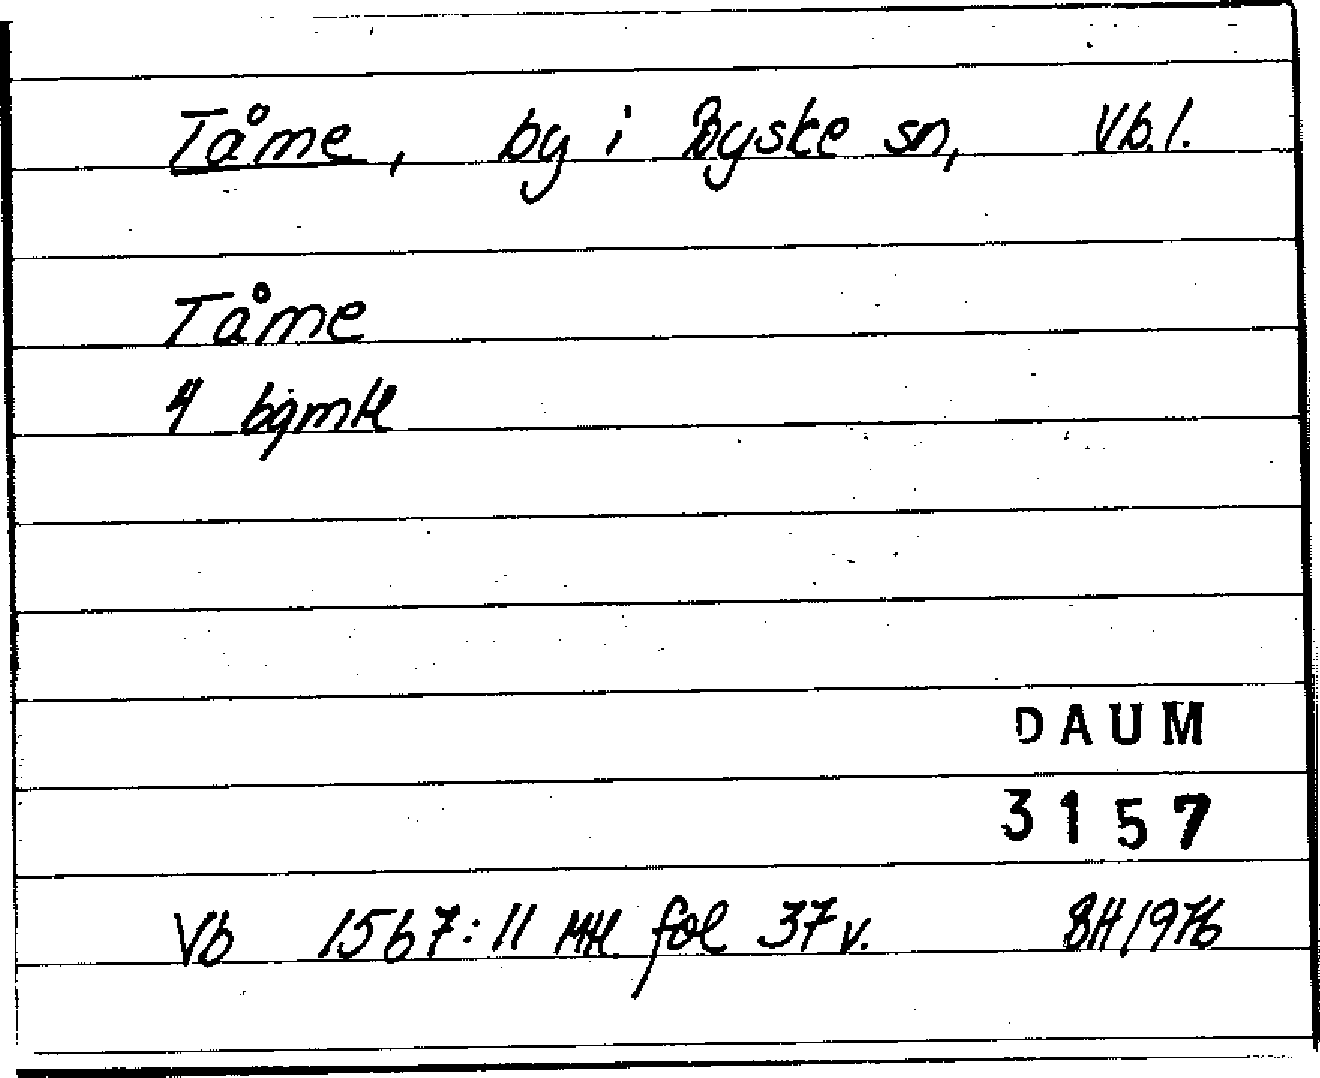 Tåme, by i Byske sn, Vb.l.
Tåme
4 bgmtl
DAUM
3157
Vb 1567:11 Mtl. fol 37 v. BH/1976